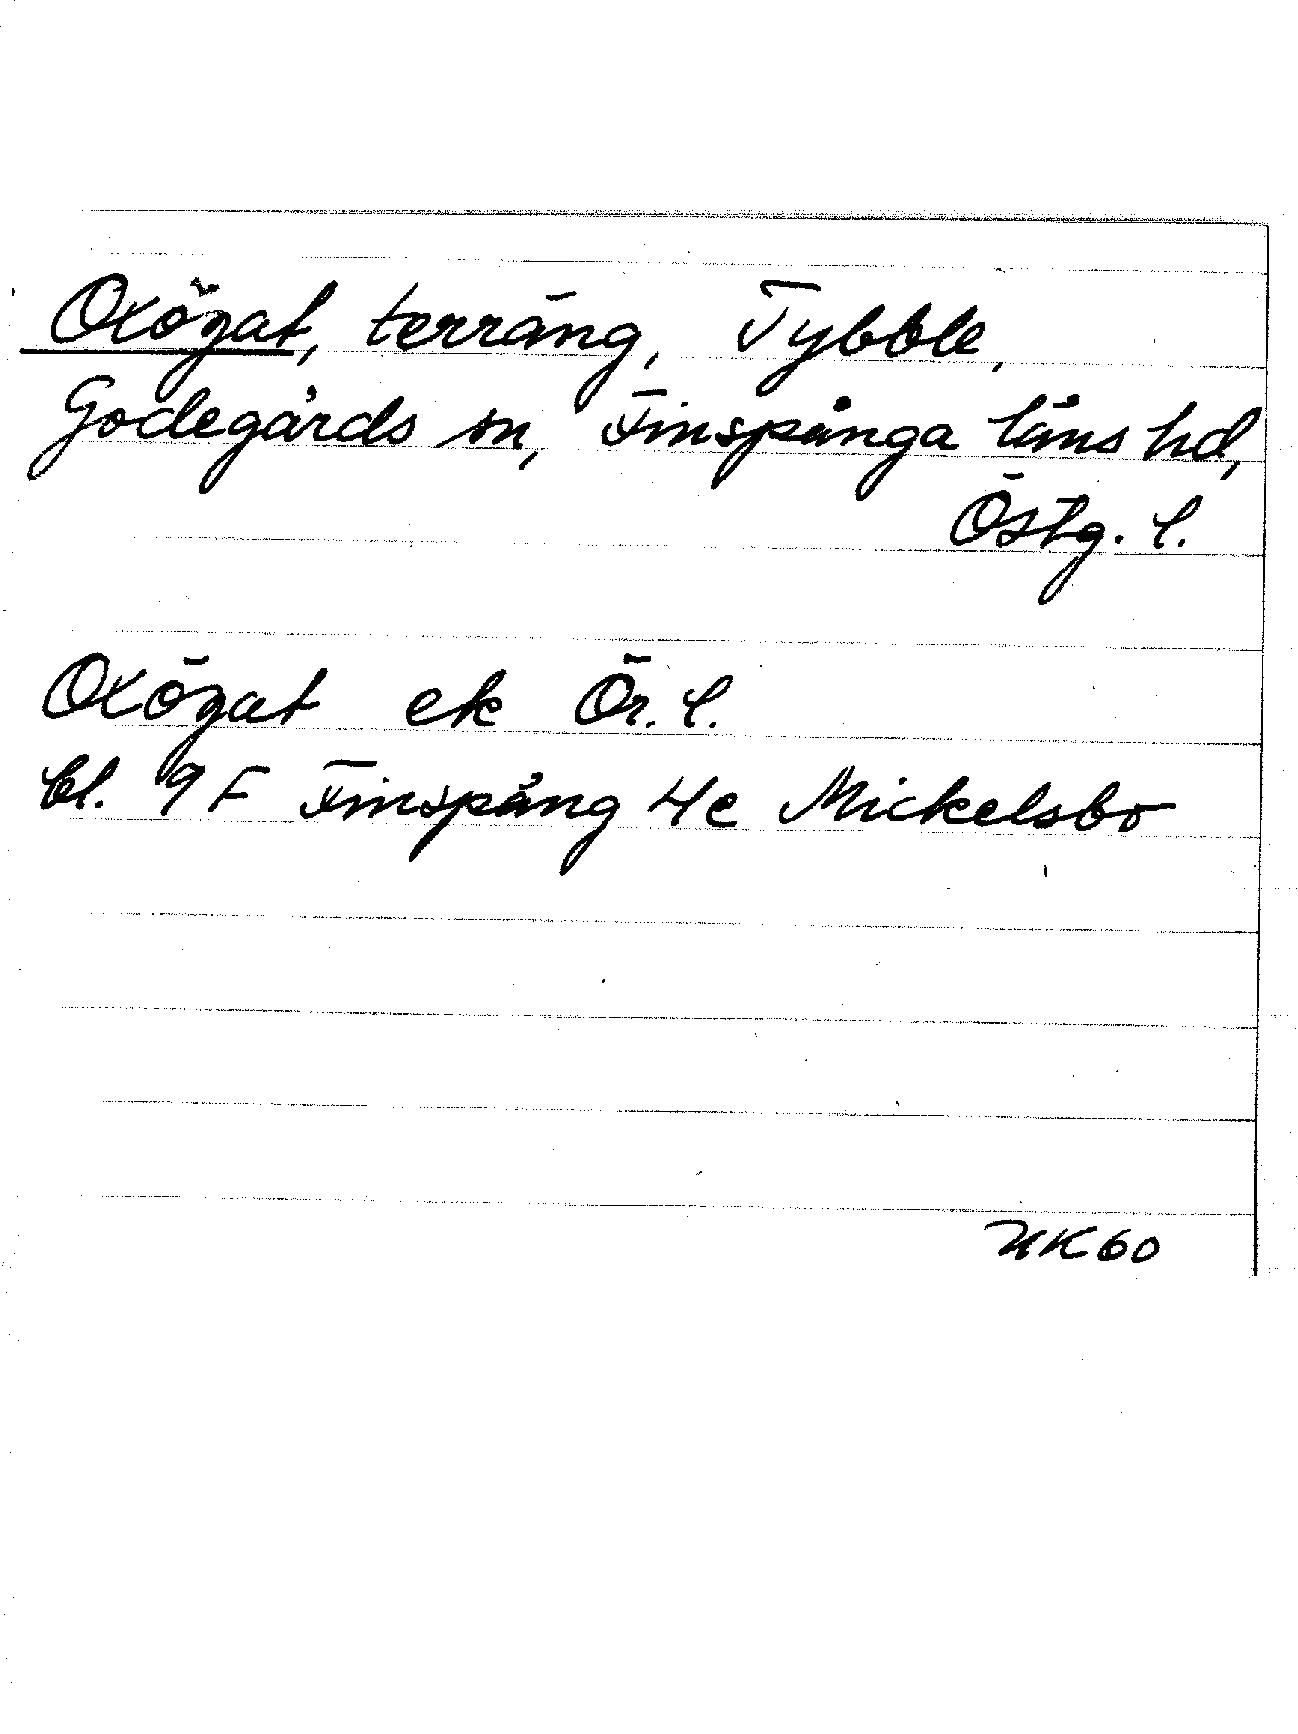 Oxögat, terräng, Tybble,
Godegårds sn, Finspånga läns hd,
Östg. l.
Oxögat ek Ör. l.
bl. 9F Finspång 4e Mickelsbo
NK60